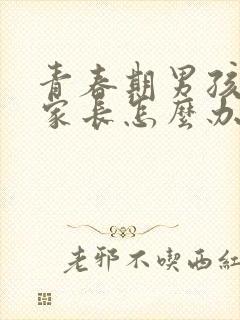 青春期男孩
家長怎麼办
老邪不喫西紅